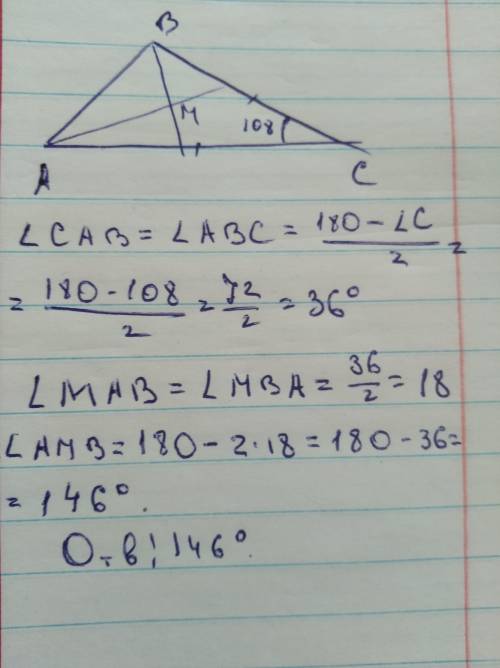 B
M
108
A
C
∠CAB = ∠ABC = (180 - ∠C)/2 =
= (180 - 108)/2 = 72/2 = 36°
∠MAB = ∠MBA = 36/2 = 18
∠AMB = 180 - 2·18 = 180 - 36 =
= 146°.
О-в! 146°.